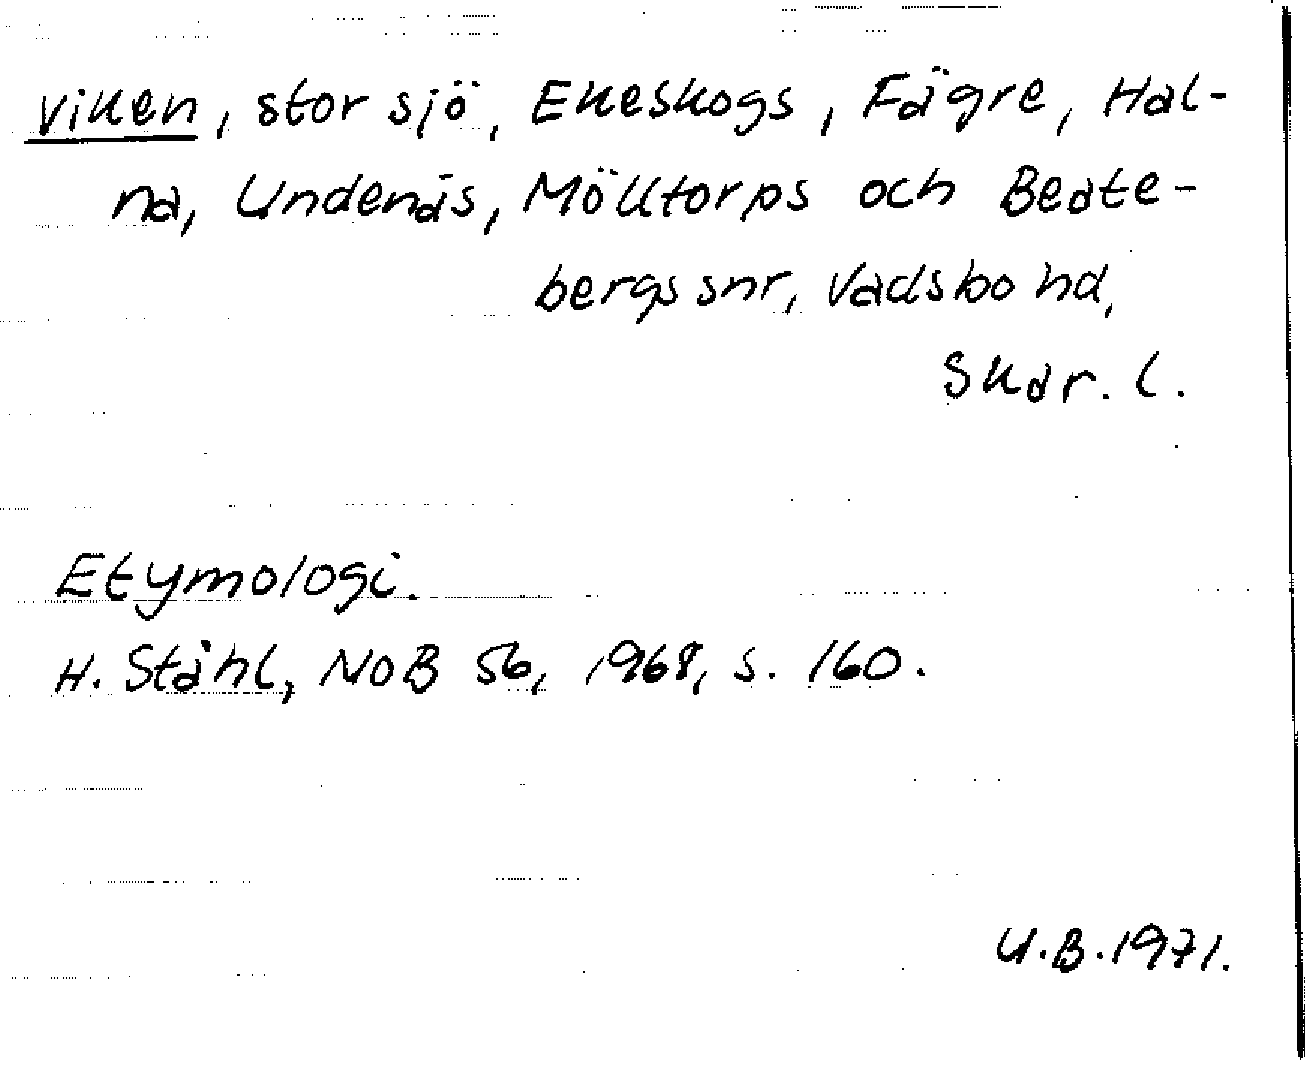 Viken, stor sjö, Ekeskogs, Fägre, Hal-
na, Undenäs, Mölltorps och Beate-
bergs snr, Vadsbo hd,
Skar. l.
Etymologi.
H. Ståhl, NoB 56, 1968, s. 160.
U.B. 1971.